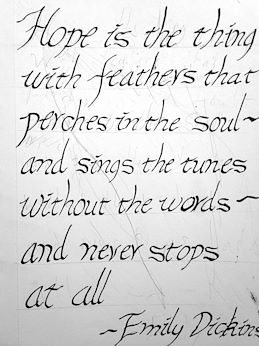 Hope is the thing
with feathers that
perches in the soul~
and sings the tunes
without the words~
and never stops
at all
~Emily Dickins